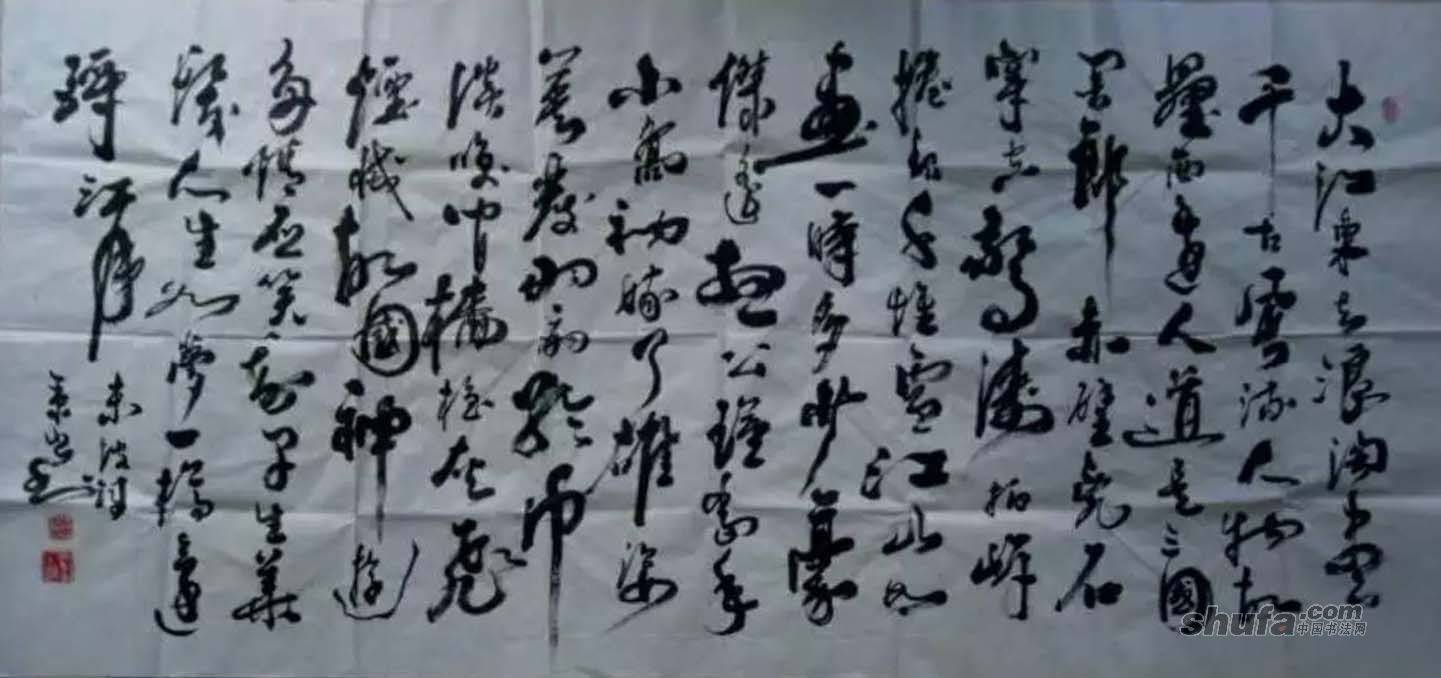 大江東去浪淘盡
千古風流人物故
壘西邊人道是三國
周郎赤壁亂石
穿空驚濤拍岸
捲起千堆雪江山如
畫一時多少豪
傑遙想公瑾當年
小喬初嫁了雄姿
英發羽扇綸巾
談笑間檣櫓灰飛
煙滅故國神遊
多情應笑我早生華
髮人生如夢一樽還
酹江月
東坡詞
shufa.com
中国书法网